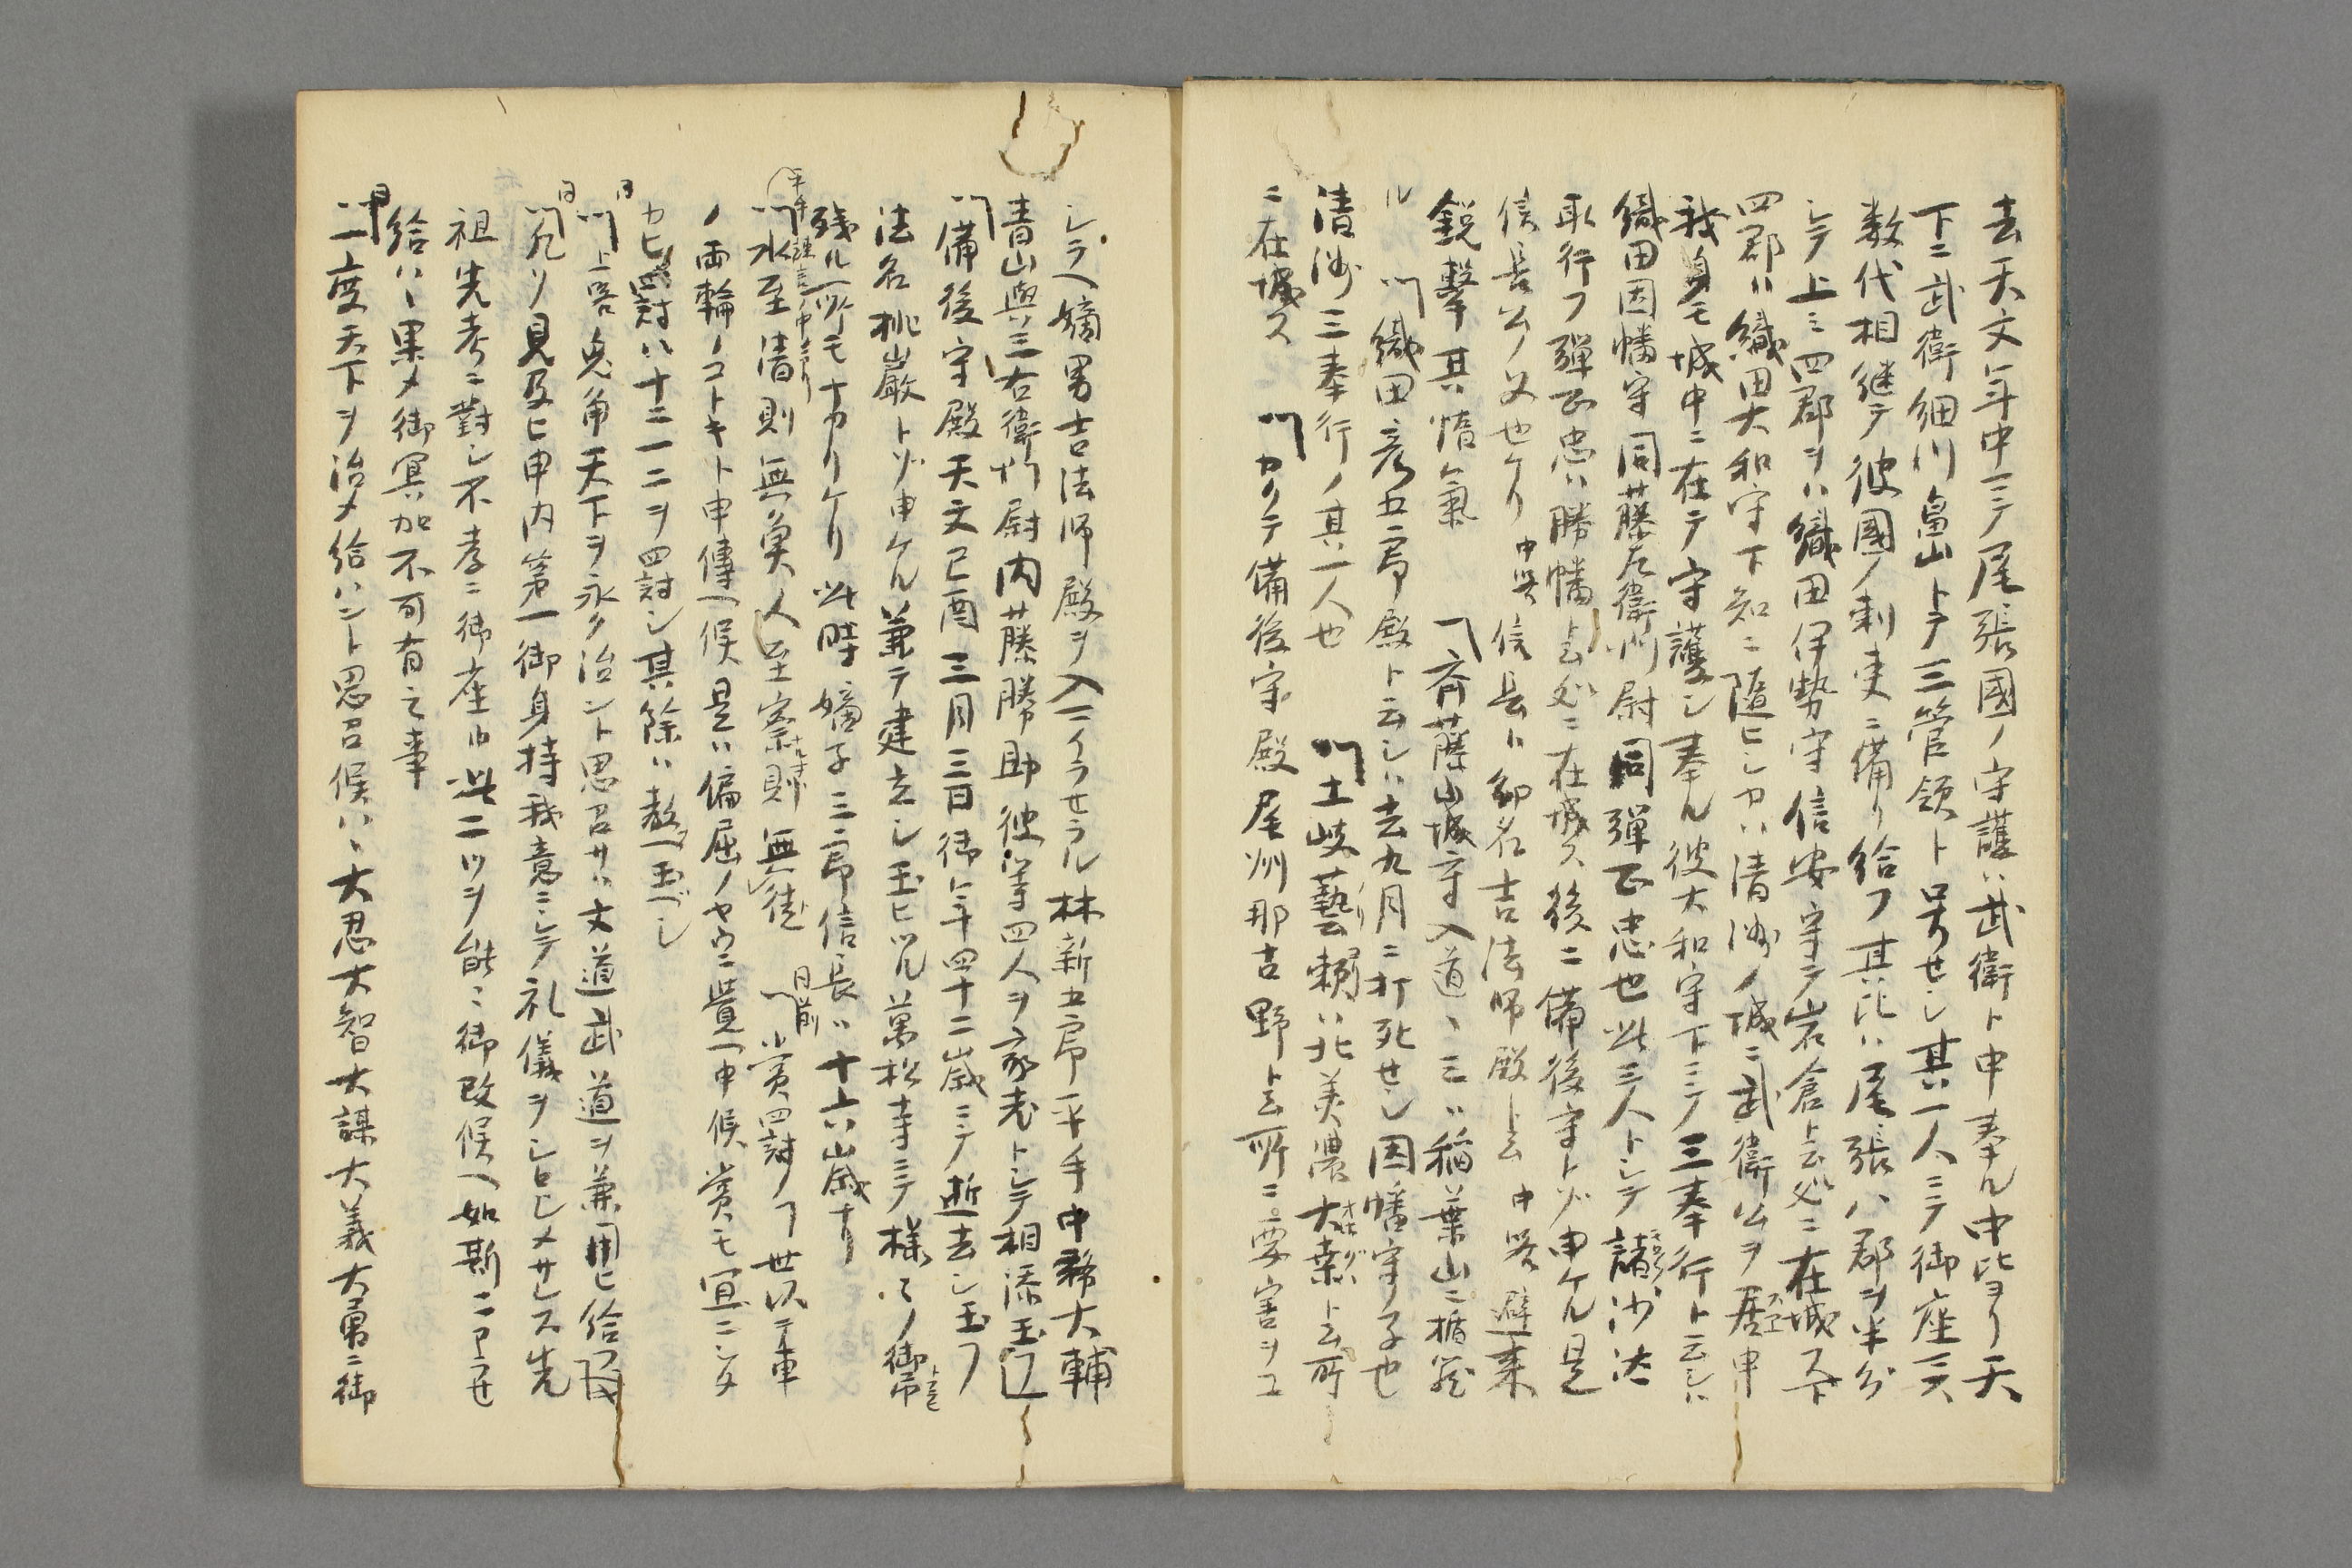 去天文年中ニテ尾張國ノ守護ハ武衛ト申奉ル中比ヨリ天
下ニ武衛細川畠山トテ三管領ト号せシ其一人ニテ御座ス
数代相継テ彼國ノ刺吏ニ備リ給フ其比ハ尾張八郡ヲ半分
シテ上ミ四郡ヲハ織田伊勢守信安守テ岩倉ト云処ニ在城ス下
四郡ハ織田大和守下知ニ随ヒシカハ清洲ノ城ニ武衛公ヲ居申
我身モ城中ニ在テ守護シ奉ル彼大和守下ニテ三奉行ト云シハ
織田因幡守同藤左衛門尉同弾正忠也此三人トシテ諸沙汰
取行フ弾正忠ハ勝幡ト云処ニ在城ス後ニ備後守トゾ申ケル是
信長公ノ父也ケリ 中畧 信長ハ幼名吉法師殿ト云 中畧 避来
鋭撃其惰氣 斎藤山城守入道ハ稲葉山ニ楯籠
ル 織田彦五郎殿ト云シハ去九月ニ打死せシ因幡守子也
清洲三奉行ノ其一人也 土岐藝頼ハ北美濃大桑ト云所
ニ在城ス カクテ備後守殿尾州那古野ト云所ニ要害ヲコ
シラヘ嫡男吉法師殿ヲ入ニイラせラル林新五郎平手中務大輔
青山與三右衛門尉内藤勝助彼等四人ヲ家老トシテ相添玉フ
備後守殿天文己酉三月三日御年四十二歳ニテ逝去シ玉フ
法名桃巌トゾ申ケル兼テ建立シ玉ヒツル萬松寺ニテ様々ノ御弔
残ル所モナカリケリ此時嫡子三郎信長ハ十六歳ナリ
平手諌言ノ中ヨリ
水至清則無魚人至察則無徒 同前 賞四討ノ フ世以テ車
ノ両輪ノコトキト申傳ヘ候是ハ偏屈ノヤウニ覚ヘ申候賞モ宜ニシタ
カヒ四討ハ十ニ一二ヲ四討シ其餘ハ教ヘ玉ヘシ
同 上 兎角天下ヲ永ク治ント思召サハ文道武道ヲ兼用ヒ給フ
同 凡リ見及ヒ申内第一御身持我意ニシテ礼儀ヲシロシメサレス先
祖先考ニ對シ不孝ニ御座ル此二ツヲ能ニ御改候ヘ如斯ニアラせ
給ハヽ果メ御冥加不可有之事
同 一度天下ヲ治メ給ハント思召候ハヽ大忍大智大謀大義大勇ニ御